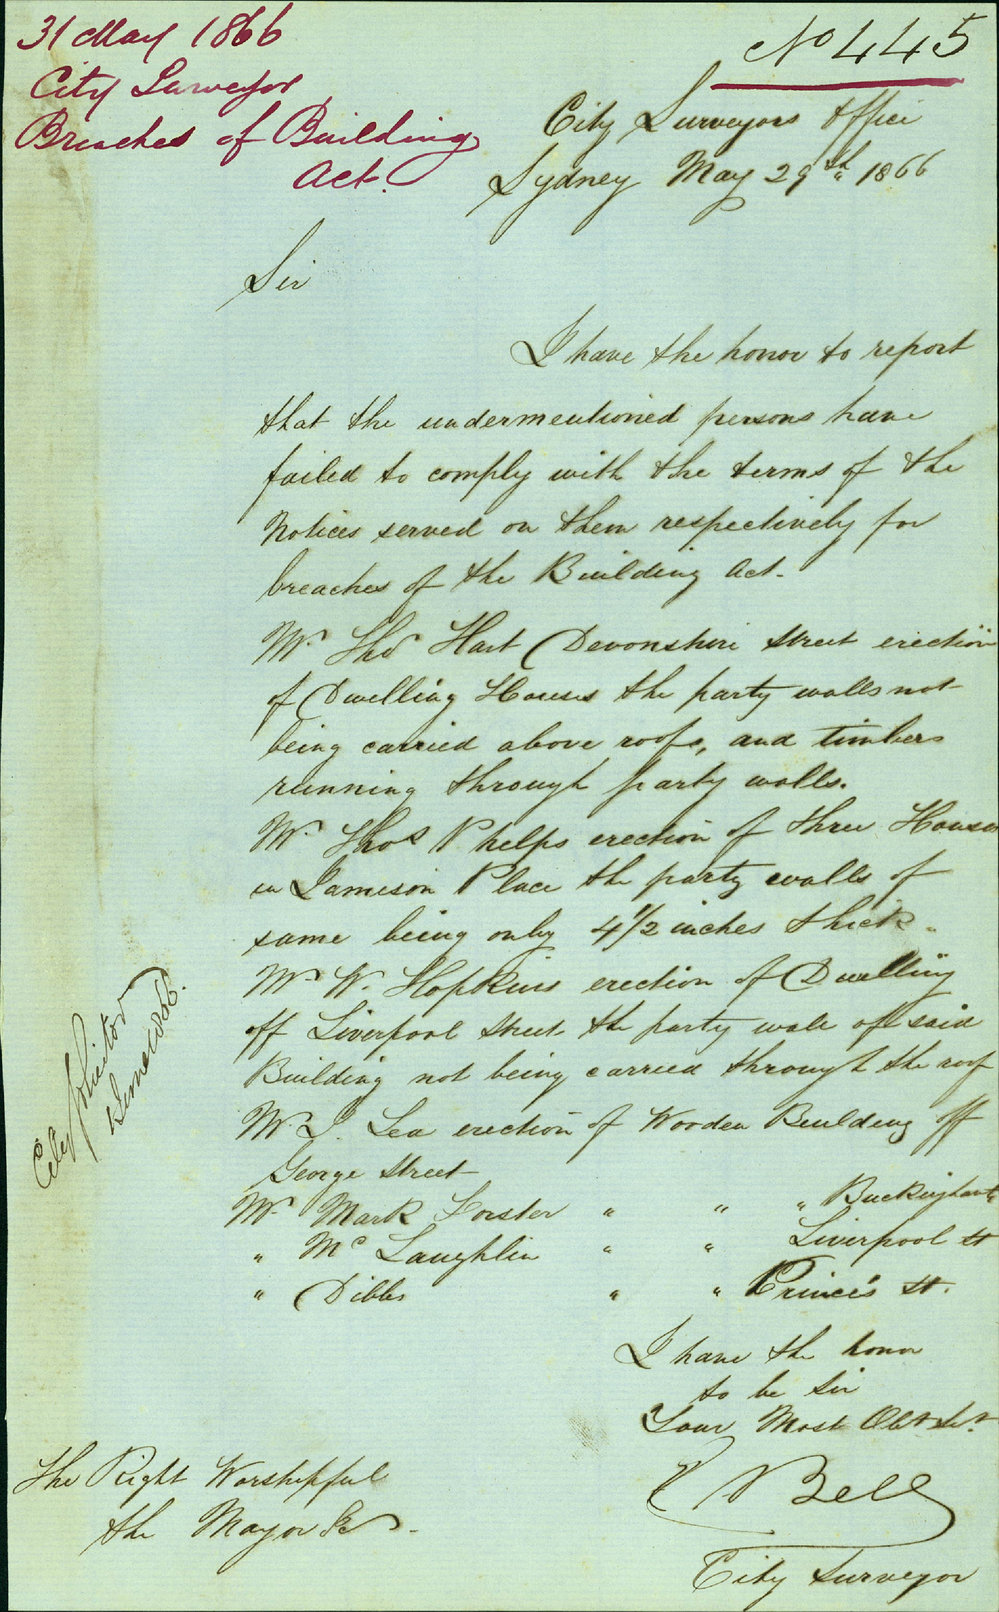 31 May 1866
City Surveyor
Breaches of Building
Act.
No 445
City Surveyors Office
Sydney May 29th 1866
Sir
I have the honor to report
that the undermentioned persons have
failed to comply with the terms of the
Notices served on them respectively for
breaches of the Building Act.
Mr. Thos Hart Devonshire Street erection
of Dwelling Houses the party walls not
being carried above roofs, and timbers
running through party walls.
Mr. Thos Phelps erection of three Houses
in Jamison Place the party walls of
same being only 4 1/2 inches thick.
Mr W. Hopkins erection of Dwelling
off Liverpool Street the party wale of said
Building not being carried through the roof
Mr. J. Lea erection of Wooden Building off
George Street
Mr. Mark Forster " " " Buckingham St
" Mc Laughlin " " Liverpool St
" Dibbs " " Prince's St.
I have the honor
to be Sir
Your Most Obt Svt.
Bell
City Surveyor
The Right Worshipful
the Mayor &c
City Solicitor
June 1866.